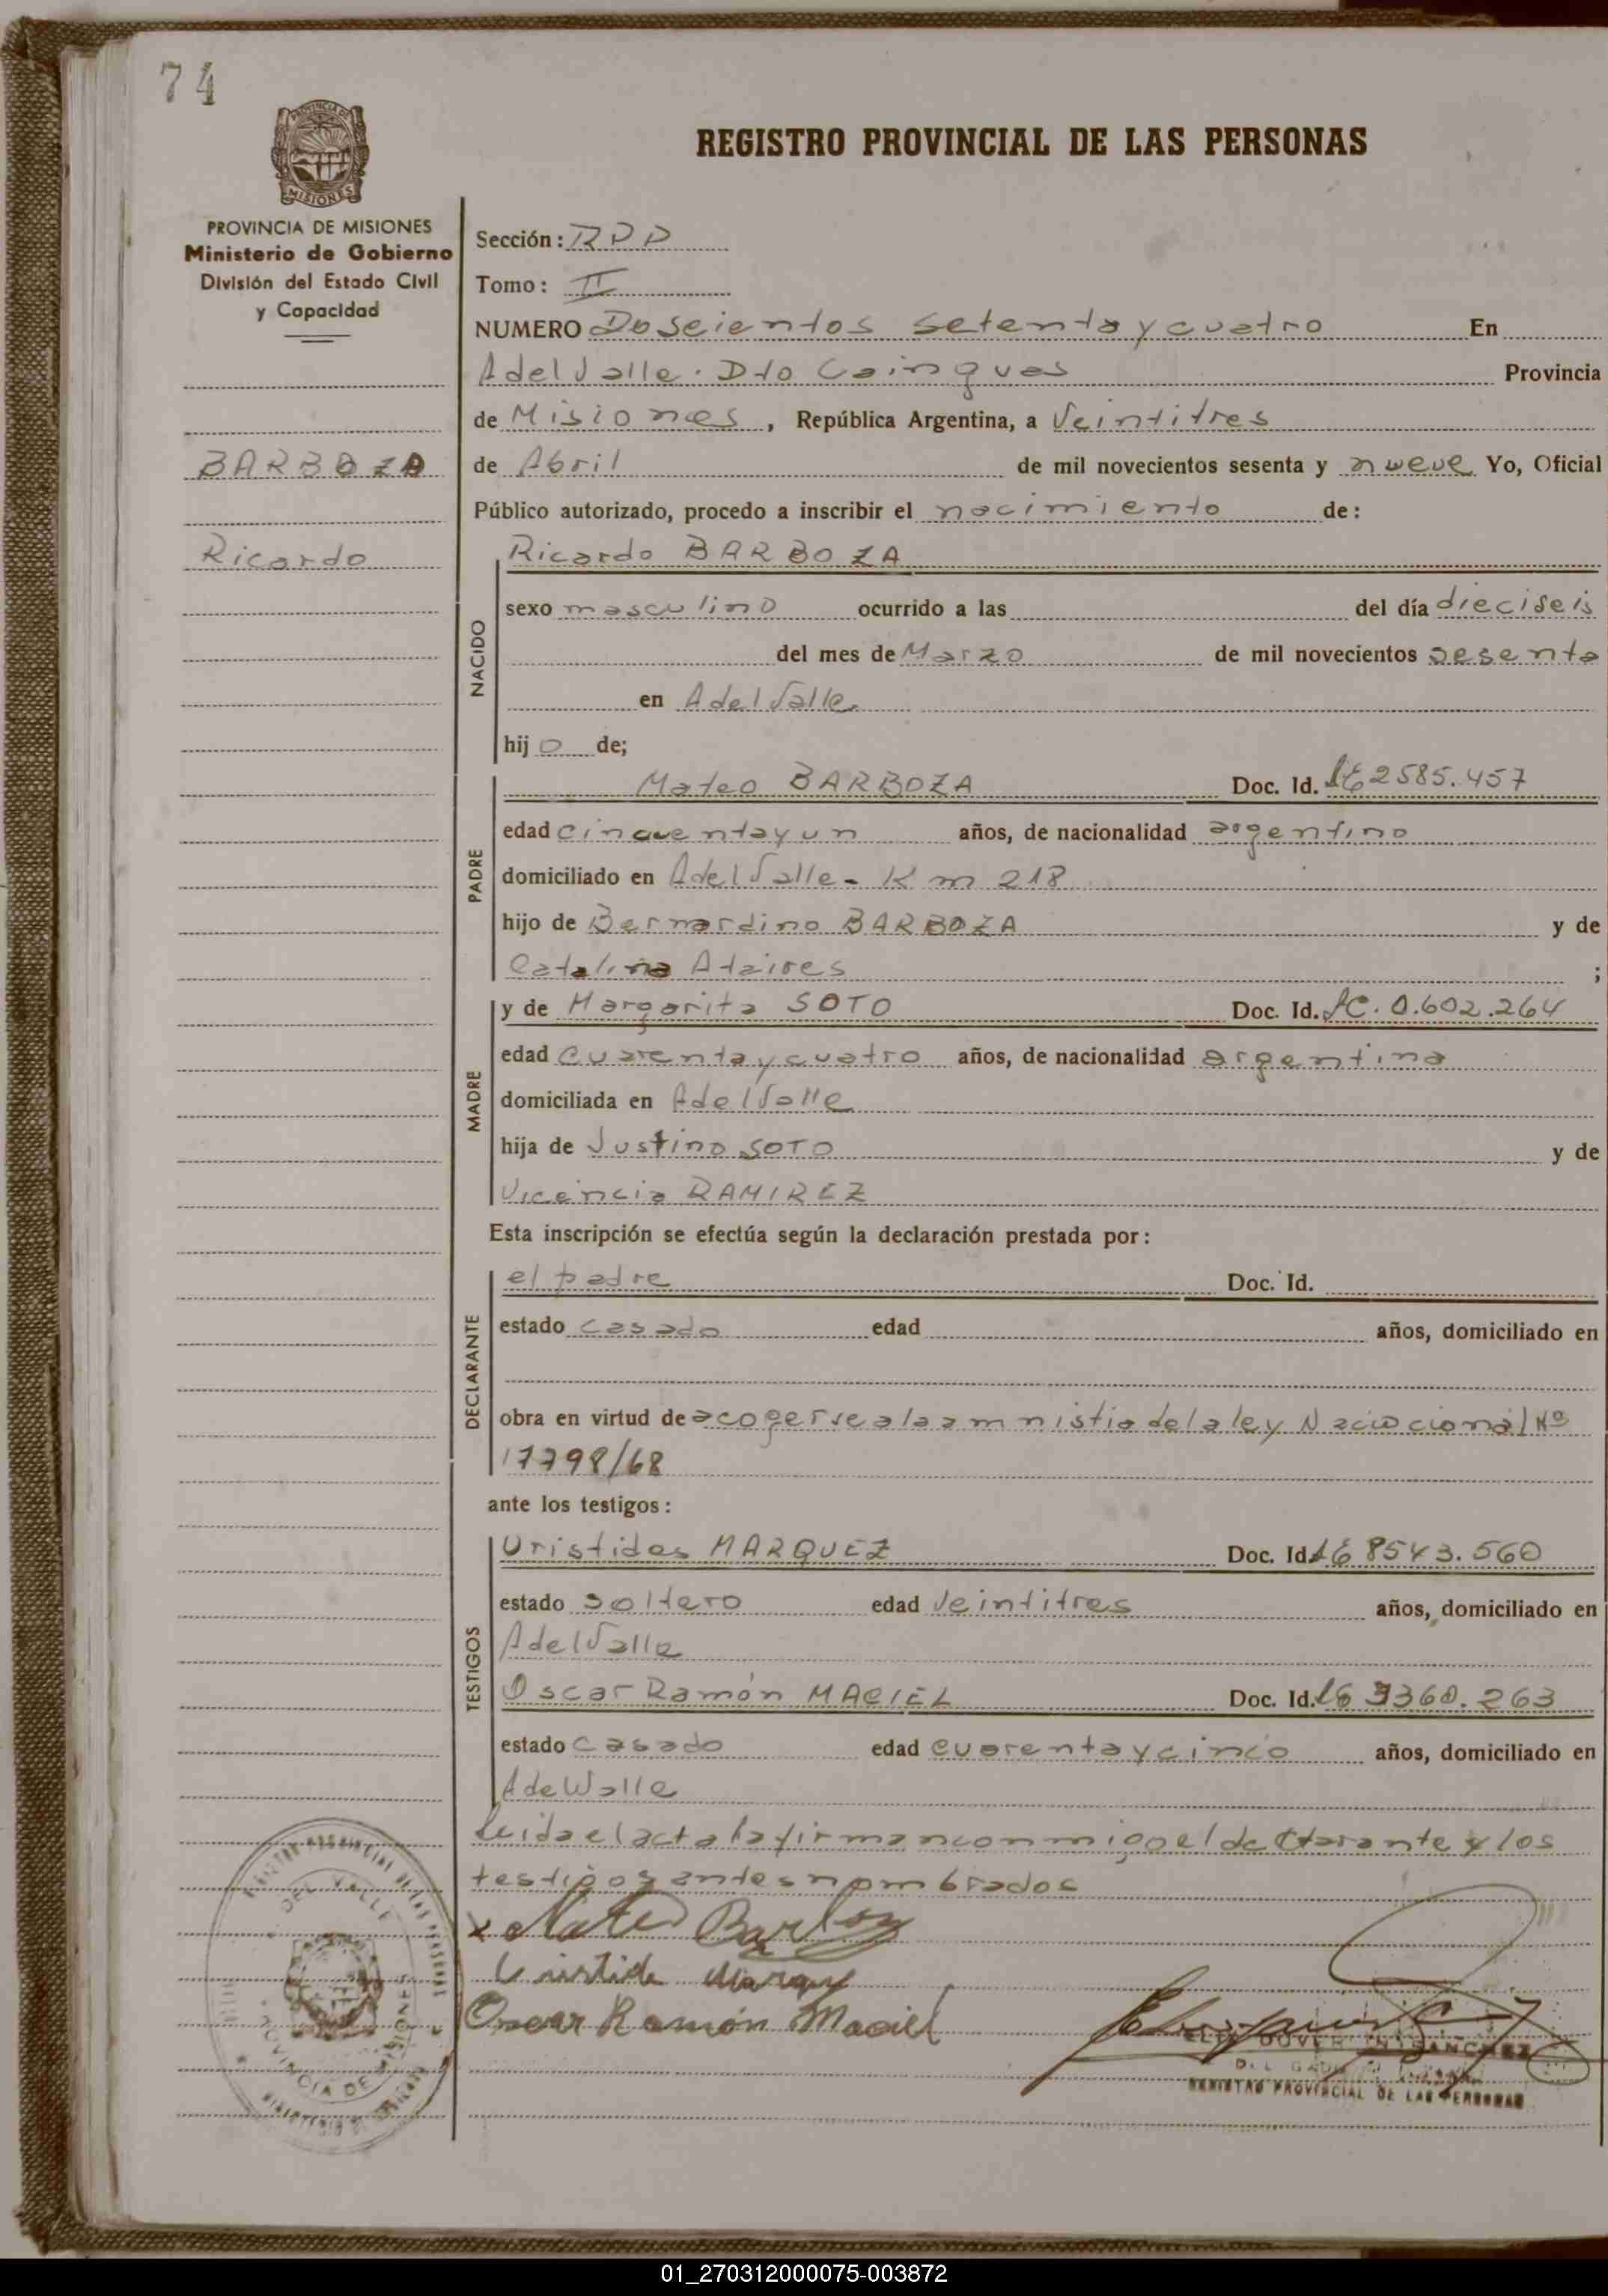 74
PROVINCIA DE
MISIONES
REGISTRO PROVINCIAL DE LAS PERSONAS
PROVINCIA DE MISIONES
Ministerio de Gobierno
División del Estado Civil
y Capacidad
BARBOZA
Ricardo
Sección: RDP
Tomo: II
NUMERO Doscientos setenta y cuatro En
A del Valle. Dto Cainguas Provincia
de Misiones, República Argentina, a Veintitres
de Abril de mil novecientos sesenta y nueve Yo, Oficial
Público autorizado, procedo a inscribir el nacimiento de:
NACIDO
Ricardo BARBOZA
sexo masculino ocurrido a las del día dieciseis
del mes de Marzo de mil novecientos sesenta
en A del Valle
hijo de;
PADRE
Mateo BARBOZA Doc. Id. LE 2585.457
edad cincuenta y un años, de nacionalidad argentino
domiciliado en A del Valle - Km 218
hijo de Bernardino BARBOZA y de
Catalina Ataires ;
MADRE
y de Margarita SOTO Doc. Id. LC. 0.602.264
edad cuarenta y cuatro años, de nacionalidad argentina
domiciliada en A del Valle
hija de Justino SOTO y de
Vicencia RAMIREZ
Esta inscripción se efectúa según la declaración prestada por:
DECLARANTE
el padre Doc. Id.
estado casado edad años, domiciliado en
obra en virtud de acogerse a la amnistia de la ley Naciocional Nº
17798/68
ante los testigos:
TESTIGOS
Uristides MARQUEZ Doc. Id. LE 8543.560
estado soltero edad Veintitres años, domiciliado en
A del Valle
Oscar Ramón MACIEL Doc. Id. LE 3360.263
estado casado edad cuarenta y cinco años, domiciliado en
A del Valle
Leida el acta la firman conmigo el declarante y los
testigos antes nombrados
x Mateo Barboza
Uristide Marquez
Oscar Ramón Maciel
SANCHEZ
REGISTRO PROVINCIAL DE LAS PERSONAS
DEL VALLE
PROVINCIA DE MISIONES
01_270312000075-003872